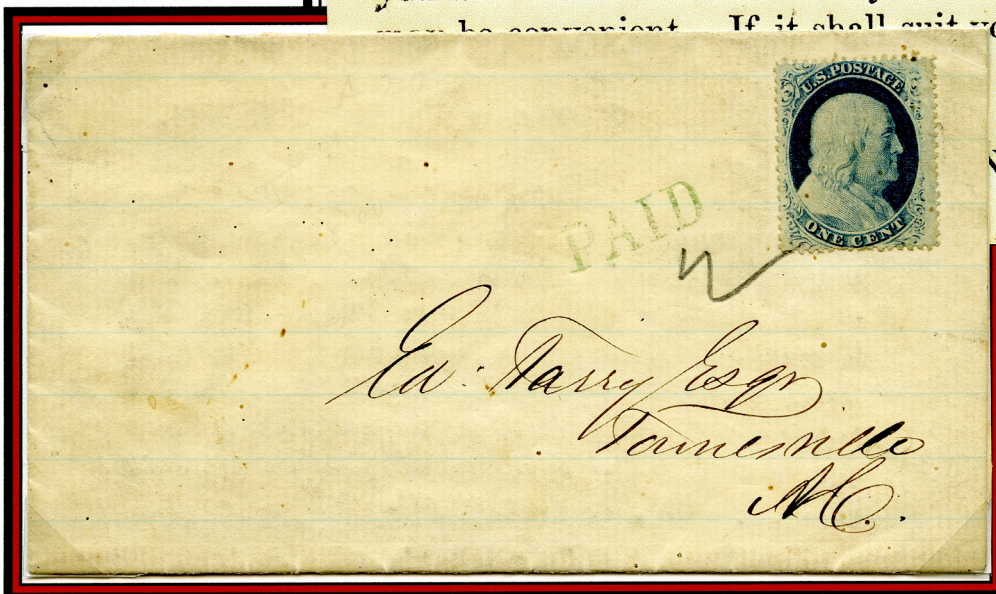 may be convenient. If it shall suit
U.S. POSTAGE
ONE CENT
PAID
Ed. Tarry Esqr
Townesville
N.C.